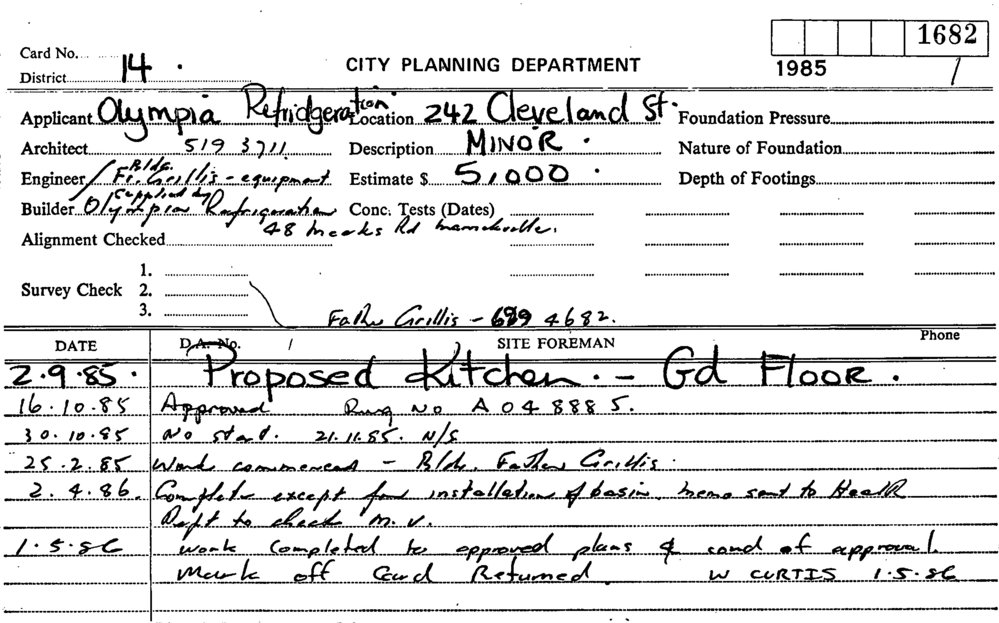 1682
Card No.
District 14 . CITY PLANNING DEPARTMENT 1985 /
Applicant Olympia Refridgeration Location 242 Cleveland St. Foundation Pressure
Architect 519 3711 Description MINOR . Nature of Foundation
Bldg.
Engineer Fr. Grillis - equipment Estimate $ 5,000 . Depth of Footings
Supplied by
Builder Olympia Refrigeration Conc. Tests (Dates)
48 Meeks Rd Marrickville.
Alignment Checked
1.
Survey Check 2.
3.
Father Grillis - 699 4682.
DATE D.A. No. / SITE FOREMAN Phone
2.9.85. Proposed Kitchen. - Gd Floor.
16.10.85 Approved Rung No A 048885.
30.10.85 No start. 21.11.85. N/S
25.2.85 Work commenced - Bldr. Father Grillis.
2.4.86. Complete except for installation of basin. memo sent to Health
Dept to check M.V.
1.5.86 Work Completed to approved plans & cond of approval.
Mark off Card Returned W CURTIS 1.5.86